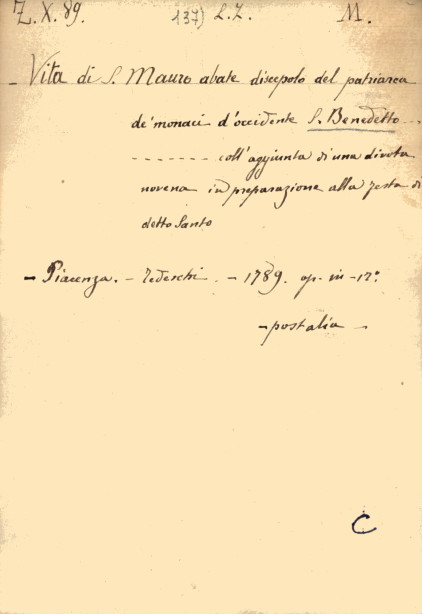 Z.X.89. 137) L.Z. M.
- Vita di S. Mauro abate discepolo del patriarca
de' monaci d'occidente S. Benedetto ...
- - - - - - - coll'aggiunta di una divota
novena in preparazione alla festa di
detto Santo
- Piacenza. - Tedeschi. - 1789. op. in - 12°
- post alia -
C